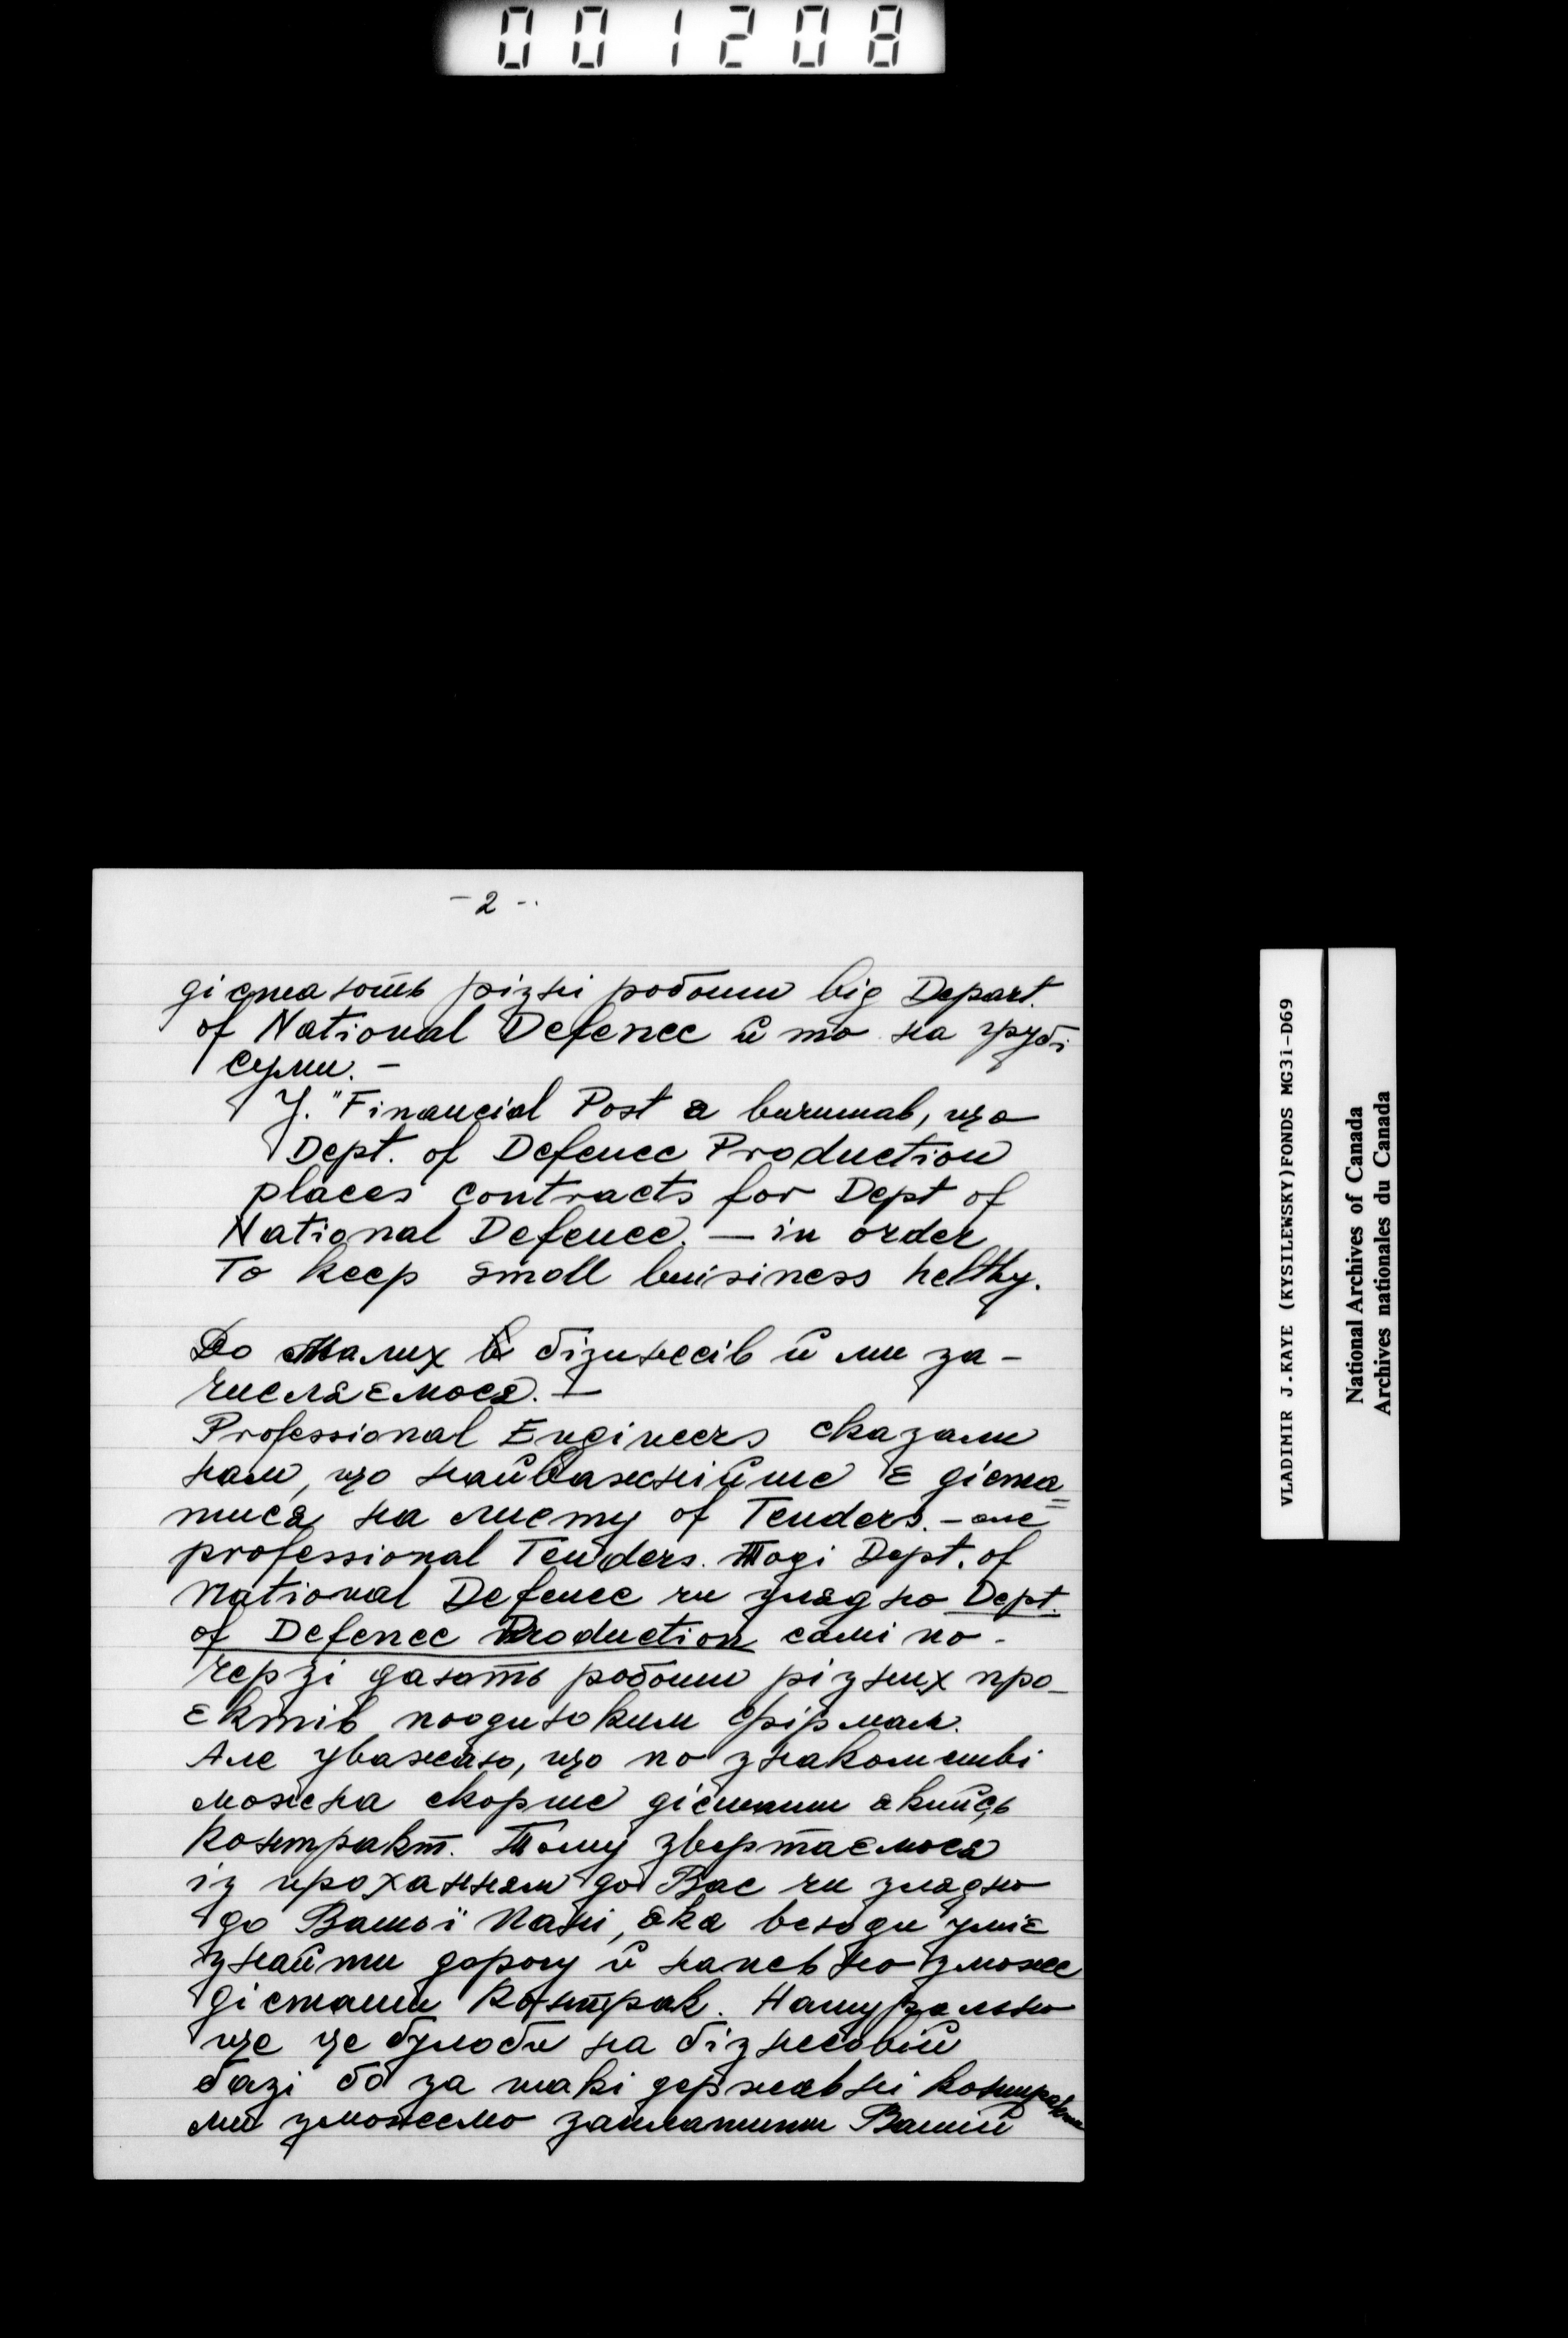 001208
- 2 -
дістають різні роботи від Depart.
of National Defence й то на грубі
суми. -
У. "Financial Post я вичитав, що
Dept. of Defence Production
places contracts for Dept of
National Defence. — in order
To keep small buisiness helthy.
До Малих бізнесів й ми за-
числяємося. —
Professional Engineers сказали
нам, що найважнійше є діста=
тися на листу of Tenders. - але
professional Tenders. Тоді Dept. of
National Defence чи зглядно Dept.
of Defence Production самі по-
черзі дають роботи різних про-
єктів поодиноким фірмам.
Але уважаю, що по знакомстві
можна скорше дістати якийсь
контракт. Тому звертаємося
із проханням до Вас чи зглядно
до Вашої Пані, яка всюди уміє
знайти дорогу й напевно зможе
дістати контрак. Натурально
це це булоби на бізнесовій
базі бо за такі державні контракти
ми зможемо заплатити Вашій
VLADIMIR J.KAYE (KYSILEWSKY)FONDS MG31-D69
National Archives of Canada
Archives nationales du Canada